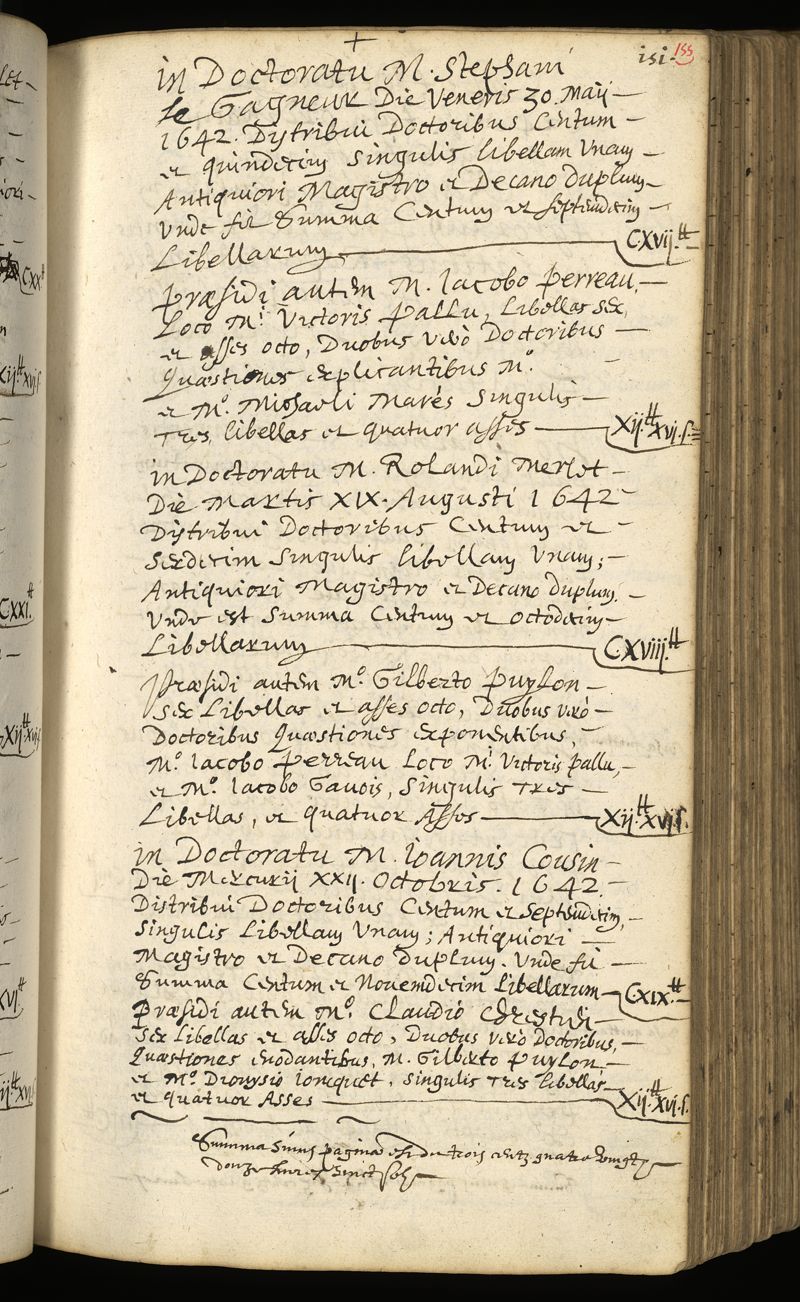 +
isi. 155
in Doctoratu M. Stephani
le Gagneur Die Veneris 30. Maij
1642. Distribui Doctoribus Centum
et quindecim singulis libellam Vnam
Antiquiori Magistro et Decano duplum
Vnde fit Summa Centum et septemdecim
Libellarum CXVij.tt
Præsidi autem M. Iacobo Perreau,
Loco M.i Victoris Pallu, Libellas sex,
et asses octo, Duobus verò Doctoribus
Quæstiones explicantibus M.o
et M.o Michaeli Marés singulis
Tres, libellas et quatuor asses Xij.tt XVj.s.
in Doctoratu M. Rolandi Merlet
Die Martis XIX. Augusti 1642
Distribui Doctoribus Centum et
sexdecim singulis libellam Vnam;
Antiquiori Magistro et Decano duplum.
Vnde est Summa Centum et octodecim
Libellarum CXViii.tt
Præsidi autem M.o Gilberto Puylon
sex Libellas et asses octo, Duobus verò
Doctoribus Quæstiones exponentibus,
M.o Iacobo Perreau Loco M.i Victoris Pallu,
et M.o Iacobo Gauois, singulis Tres
Libellas, et quatuor Asses Xij.tt XVj.s.
in Doctoratu M. Ioannis Cousin
Die Mercurij XXIj. Octobris. 1642.
Distribui Doctoribus Centum et septemdecim,
singulis Libellam Vnam; Antiquiori
Magistro et Decano duplum. Vnde fit
Summa Centum et Nouemdecim Libellarum CXIX.tt
Præsidi autem M.o Claudio
sex Libellas et asses octo, Duobus verò Doctoribus,
Quæstiones enodantibus, M. Gilberto Puylon,
et M.o Dionysio Ioncquet, singulis Tres libellas
et quatuor Asses Xij.tt XVj.s.
Summa paginæ est de trois centz quatre vingtz
douze liures sols